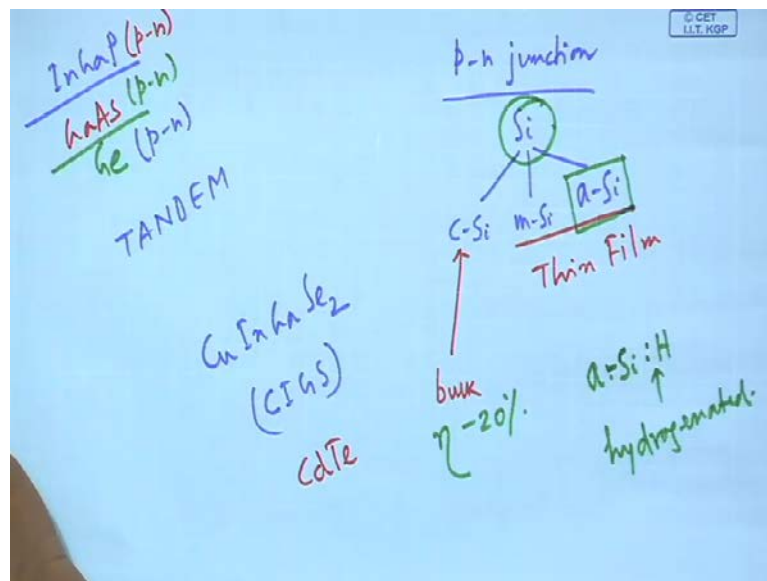 InGaP (p-n)
GaAs (p-n)
Ge (p-n)
TANDEM
CuInGaSe2
(CIGS)
CdTe
© CET
I.I.T. KGP
p-n junction
Si
c-Si m-Si a-Si
Thin Film
bulk
η-20%.
a:Si:H
hydrogenated.